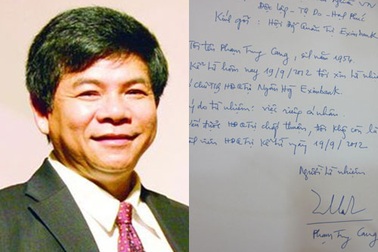 Độc Lập - Tự Do - Hạnh Phúc
Kính gởi : Hội Đồng Quản Trị Eximbank
Tôi tên Phạm Trung Cang, s/năm 1954
kể từ hôm nay 19/9/2012 tôi xin từ nhiệm
chủ tịch HĐQTrị Ngân Hàng Eximbank.
lý do từ nhiệm: việc riêng cá nhân.
được HĐQTrị chấp thuận, tôi không còn là
viên HĐQTrị kể từ ngày 19/9/2012
Người từ nhiệm
Phạm Trung Cang